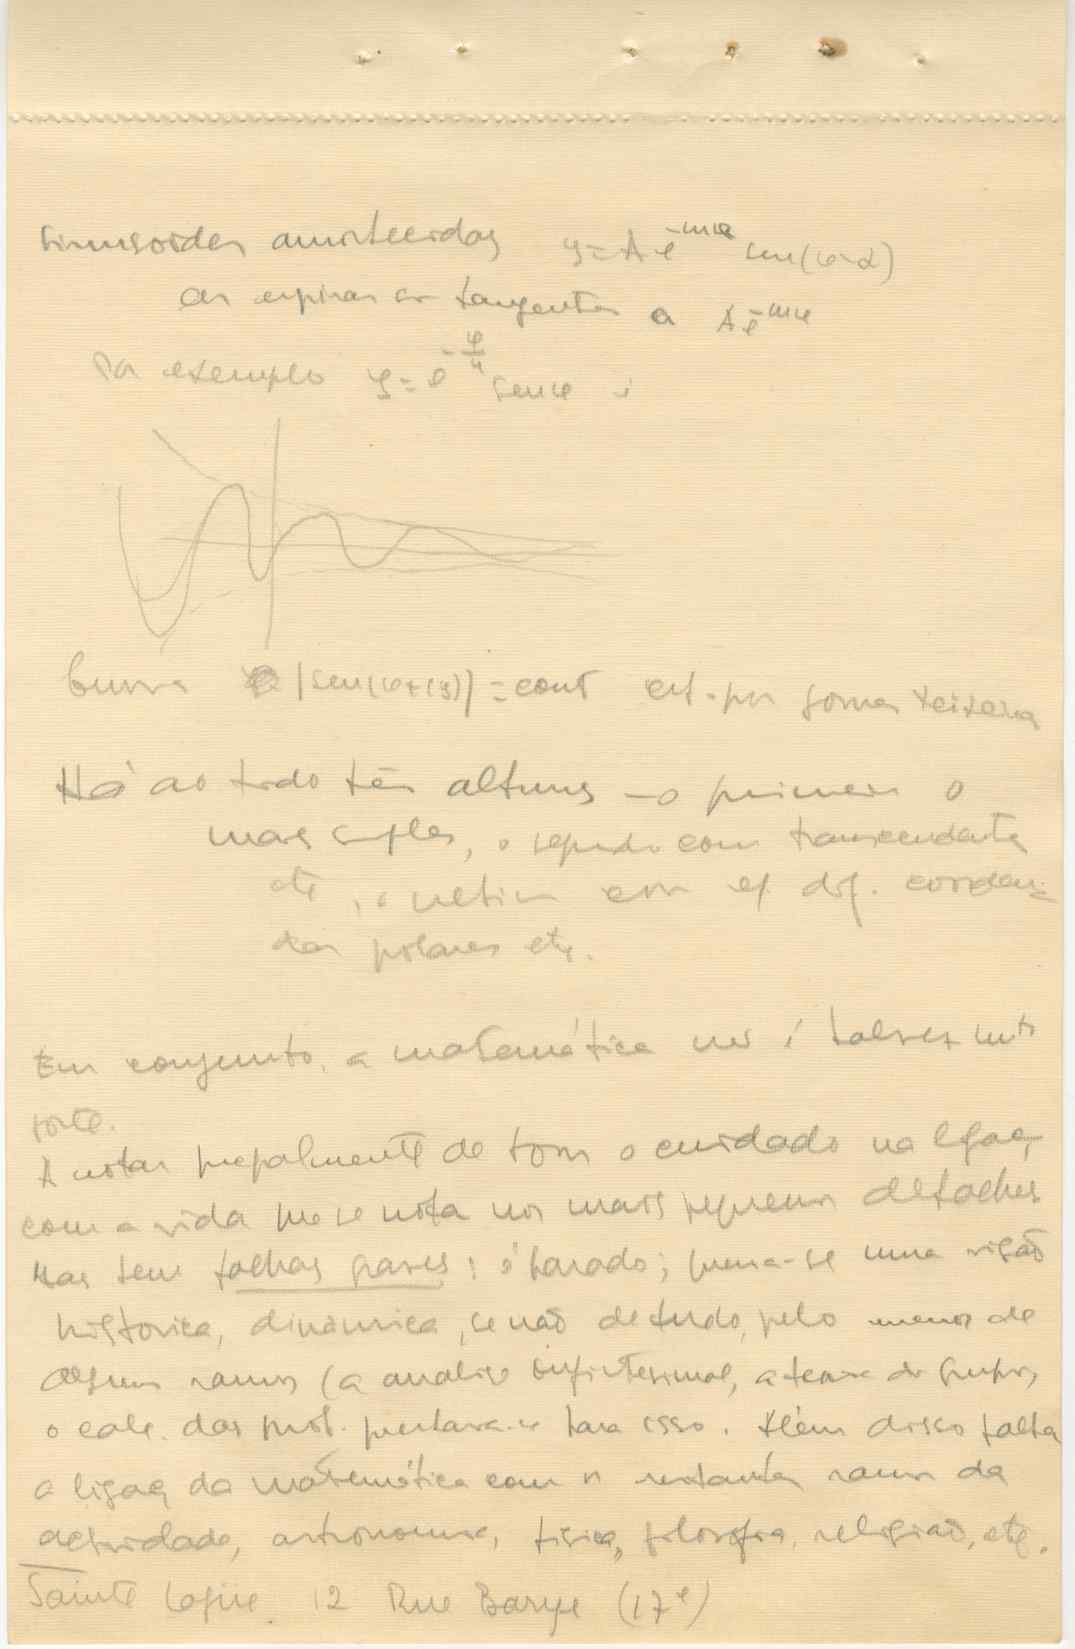 sinusoides amortecidas y = A e^{-mφ} sen(φ-α)
as espiras são tangentes a A e^{-mφ}
Por exemplo y = e^{-φ/4} sen φ é
Curva |sen(x+iy)| = const est. por Gomes Teixeira
Há ao todo três albuns — o primeiro o
mais simples, o segundo com transcendentes
etc, o ultimo com eq. dif. coordena-
das polares etc.
Em conjunto, a matemática não é talvez mto
forte.
A notar principalmente de bom o cuidado na ligaç
com a vida que se nota nos mais pequenos detalhes
Mas tem falhas graves: é parado; precisa-se uma visão
historica, dinamica, se não de tudo, pelo menos de
alguns ramos (a analise infinitesimal, a teoria dos grupos,
o calc. das prob. prestava-se para isso. Além disso falta
a ligaç da matemática com os restantes ramos da
actividade, astronomia, fisica, filosofia, religião, etc.
Sainte Lagüe 12 Rue Barye (17e)